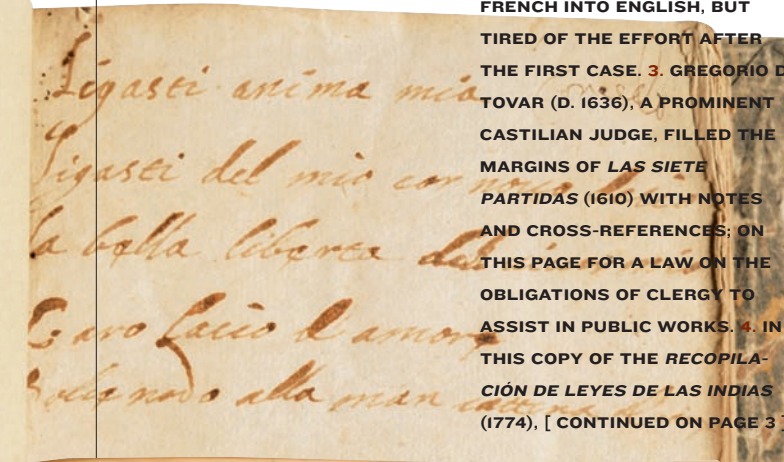 Ligasti anima mia
Ligasti del mio cor
la bella liberta
Caro laccio d amore
nodo alla man
FRENCH INTO ENGLISH, BUT
TIRED OF THE EFFORT AFTER
THE FIRST CASE. 3. GREGORIO D
TOVAR (D. 1636), A PROMINENT
CASTILIAN JUDGE, FILLED THE
MARGINS OF LAS SIETE
PARTIDAS (1610) WITH NOTES
AND CROSS-REFERENCES; ON
THIS PAGE FOR A LAW ON THE
OBLIGATIONS OF CLERGY TO
ASSIST IN PUBLIC WORKS. 4. IN
THIS COPY OF THE RECOPILA-
CIÓN DE LEYES DE LAS INDIAS
(1774), [ CONTINUED ON PAGE 3 ]